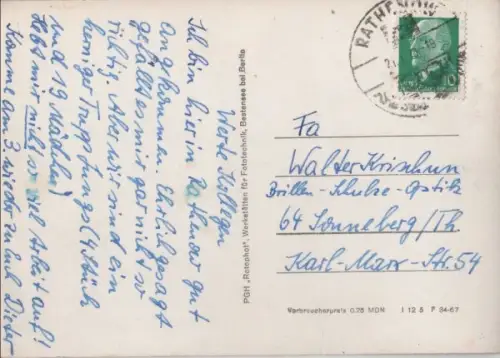 Werte Kollegen
Ich bin hier in Rathenow gut
angekommen. Ehrlich gesagt
gefällt es mir gar nicht so
richtig. Aber wir sind ein
lustiger Trupp Jungs (4 Stück
und 19 Mädchen)
Hebt mir nicht so viel Arbeit auf!
Komme am 3. wieder zu Euch Dieter
PGH „Rotophot", Werkstätten für Fototechnik, Bestensee bei Berlin
RATHENOW
10
Fa
Walter Krischun
Brillen-Schulze-Optik
64 Sonneberg/Th.
Karl-Marx-Str. 54
Verbraucherpreis 0.25 MDN I 12 8 F 34-67